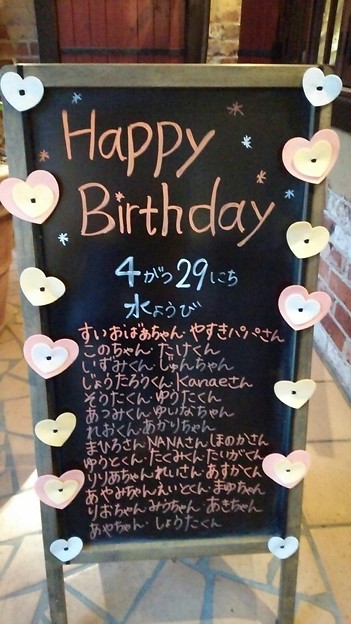 Happy
Birthday
4がつ29にち
水ようび
すいおばあちゃん・やすきパパさん
このちゃん・たけくん
いずみくん・じゅんちゃん
じょうたろうくん・Kanaeさん
そうたくん・ゆうたくん
あつみくん・ゆいなちゃん
れおくん・あかりちゃん
まひろさん・NANAさん・ほのかさん
ゆうとくん・たくみくん・たいがくん
りりあちゃん・れいさん・あすかくん
あやみちゃん・えいとくん・まゆちゃん
りおちゃん・みうちゃん・あきちゃん
あやちゃん・しょうたくん